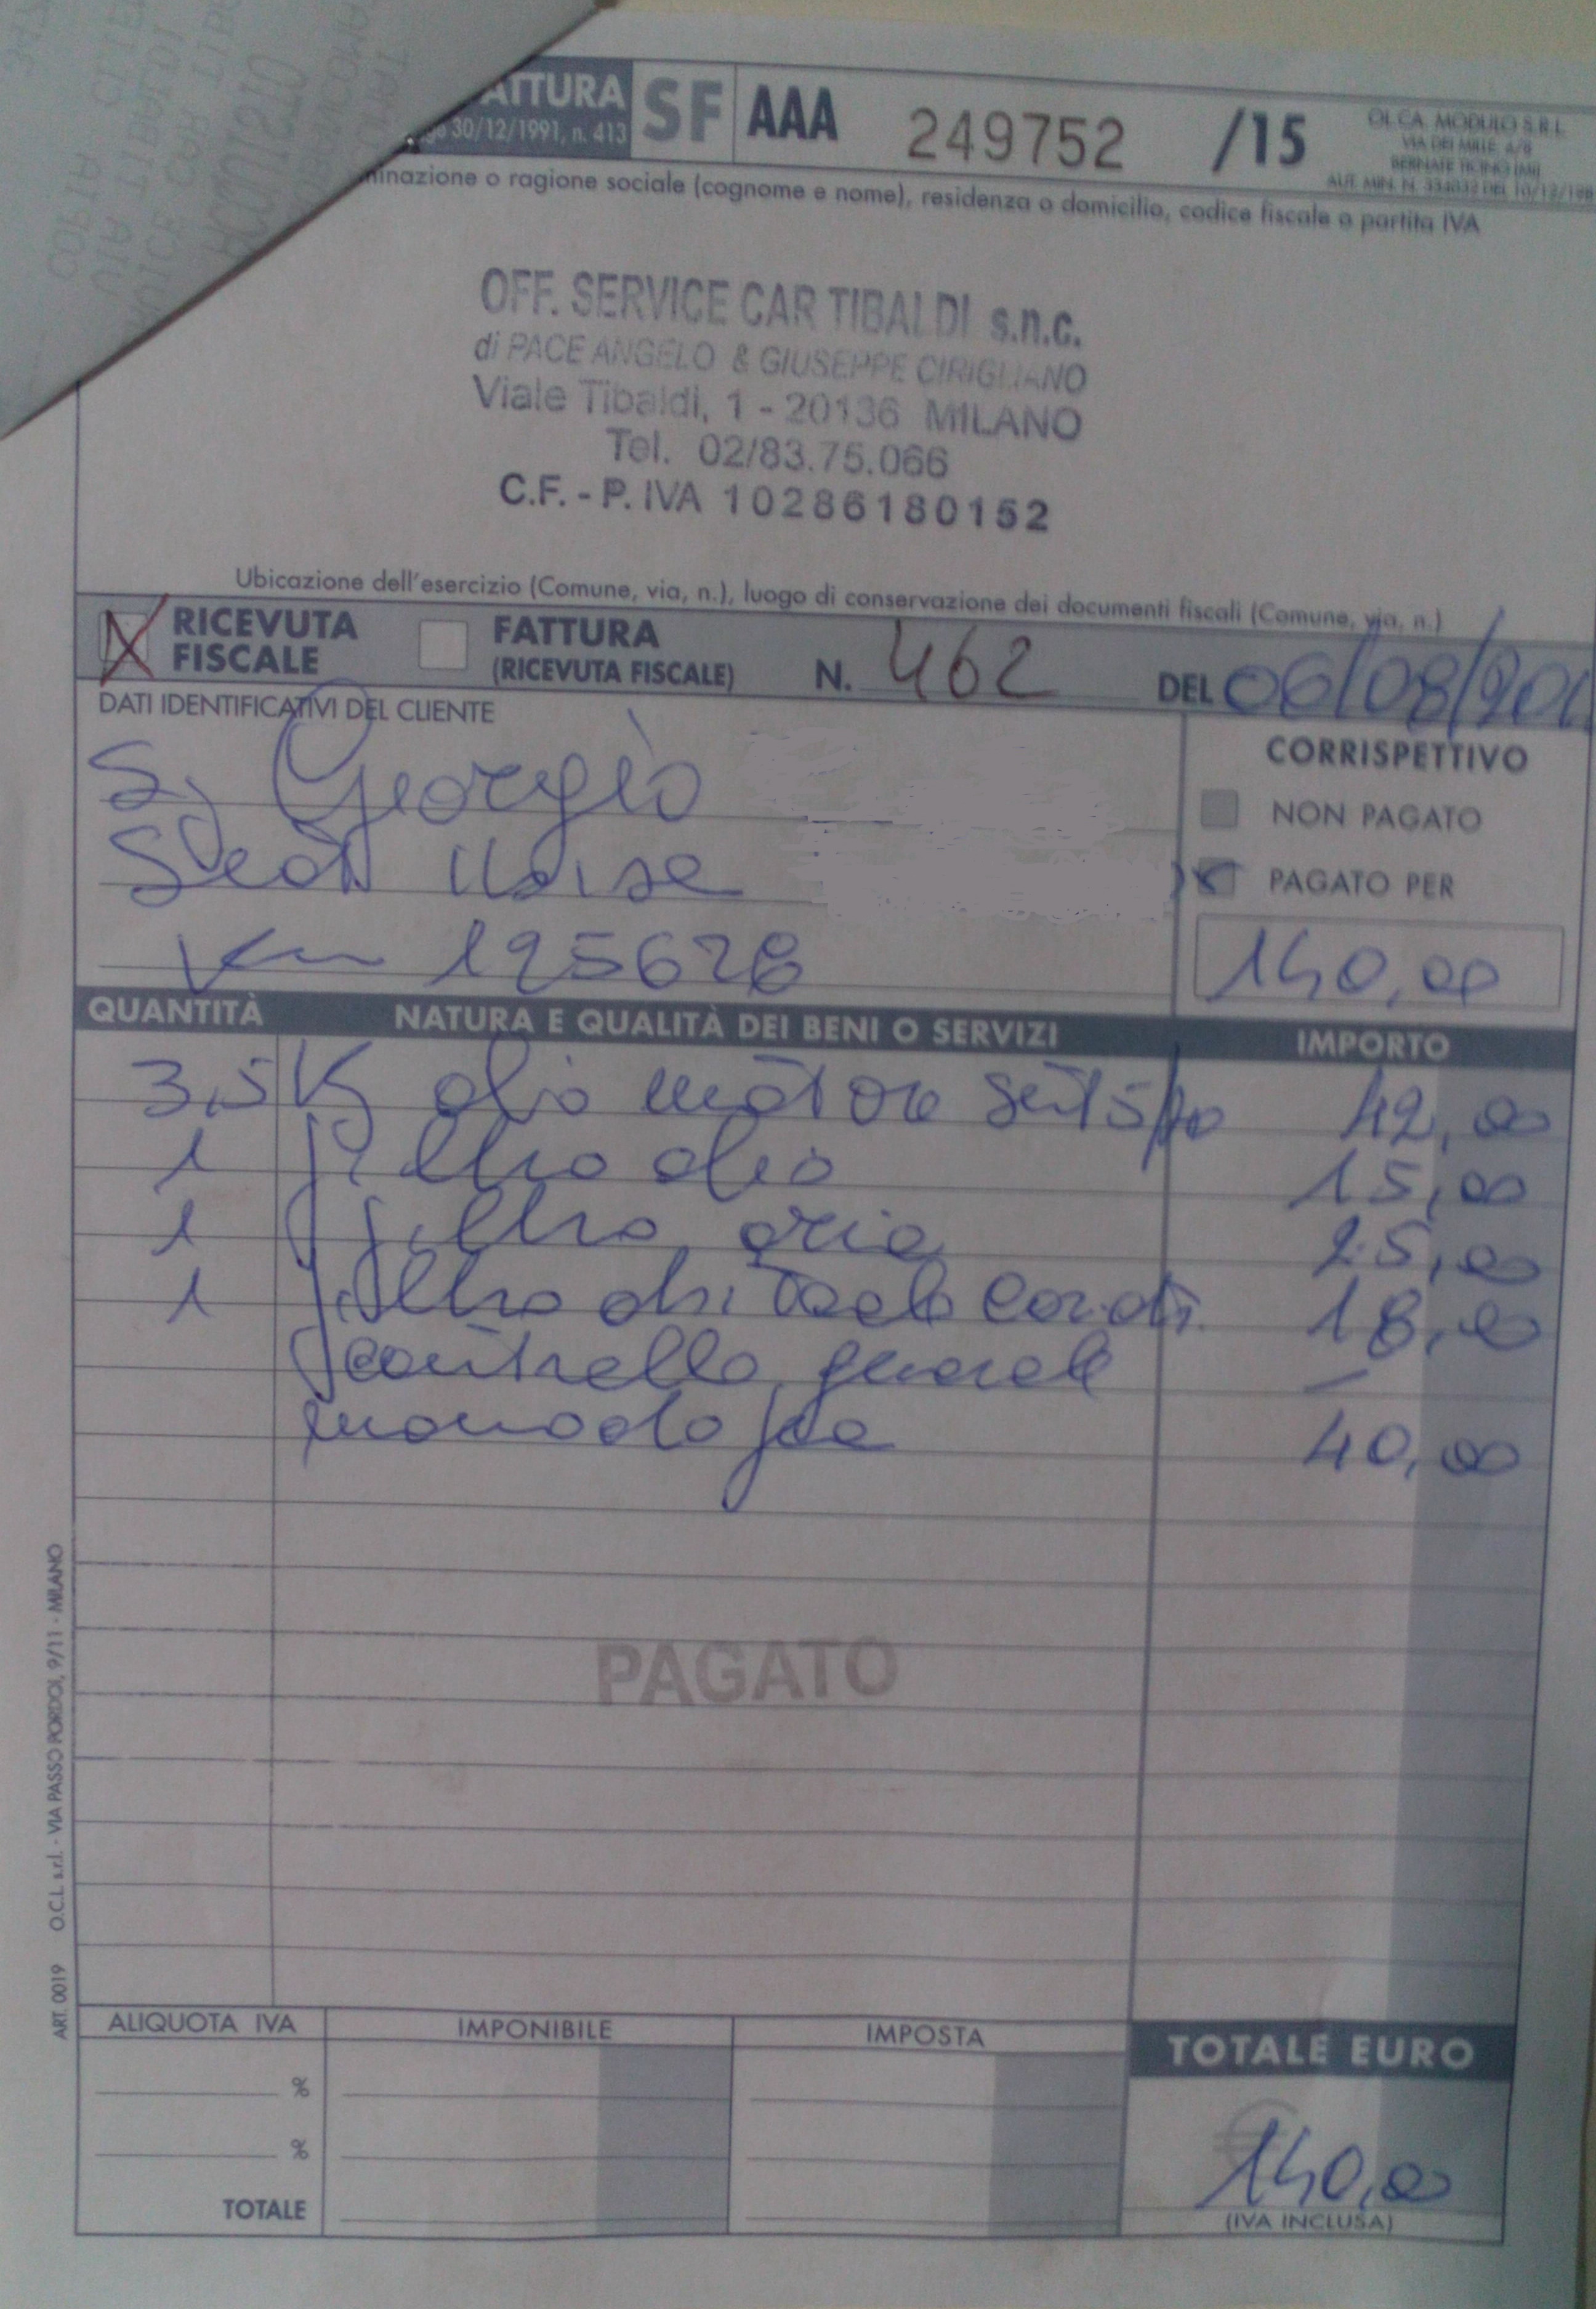 ATTURA SF AAA 249752 /15
30/12/1991, n. 413
OLCA MODULO S.R.L.
VIA DEI MILLE, 4/6
BERNATE TICINO (MI)
AUT. MIN. N. DEL 10/12/198
minazione o ragione sociale (cognome e nome), residenza o domicilio, codice fiscale o partita IVA
OFF. SERVICE CAR TIBALDI s.n.c.
di PACE ANGELO & GIUSEPPE CIRIGLIANO
Viale Tibaldi, 1 - 20136 MILANO
Tel. 02/83.75.066
C.F. - P. IVA 10286180152
Ubicazione dell'esercizio (Comune, via, n.), luogo di conservazione dei documenti fiscali (Comune, via, n.)
RICEVUTA FISCALE
FATTURA (RICEVUTA FISCALE)
N. 462 DEL 06/08/201
DATI IDENTIFICATIVI DEL CLIENTE
S, Georgiò
Seat
km 125678
CORRISPETTIVO
NON PAGATO
PAGATO PER
140,00
QUANTITÀ NATURA E QUALITÀ DEI BENI O SERVIZI IMPORTO
3,5 K olio motore 42,00
1 filtro olio 15,00
1 filtro aria 25,00
1 filtro 18,00
controllo generale –
manodo 40,00
PAGATO
ART. 0019 O.C.L. s.r.l. - VIA PASSO PORDOI, 9/11 - MILANO
ALIQUOTA IVA IMPONIBILE IMPOSTA TOTALE EURO
%
%
TOTALE
€ 140,00
(IVA INCLUSA)